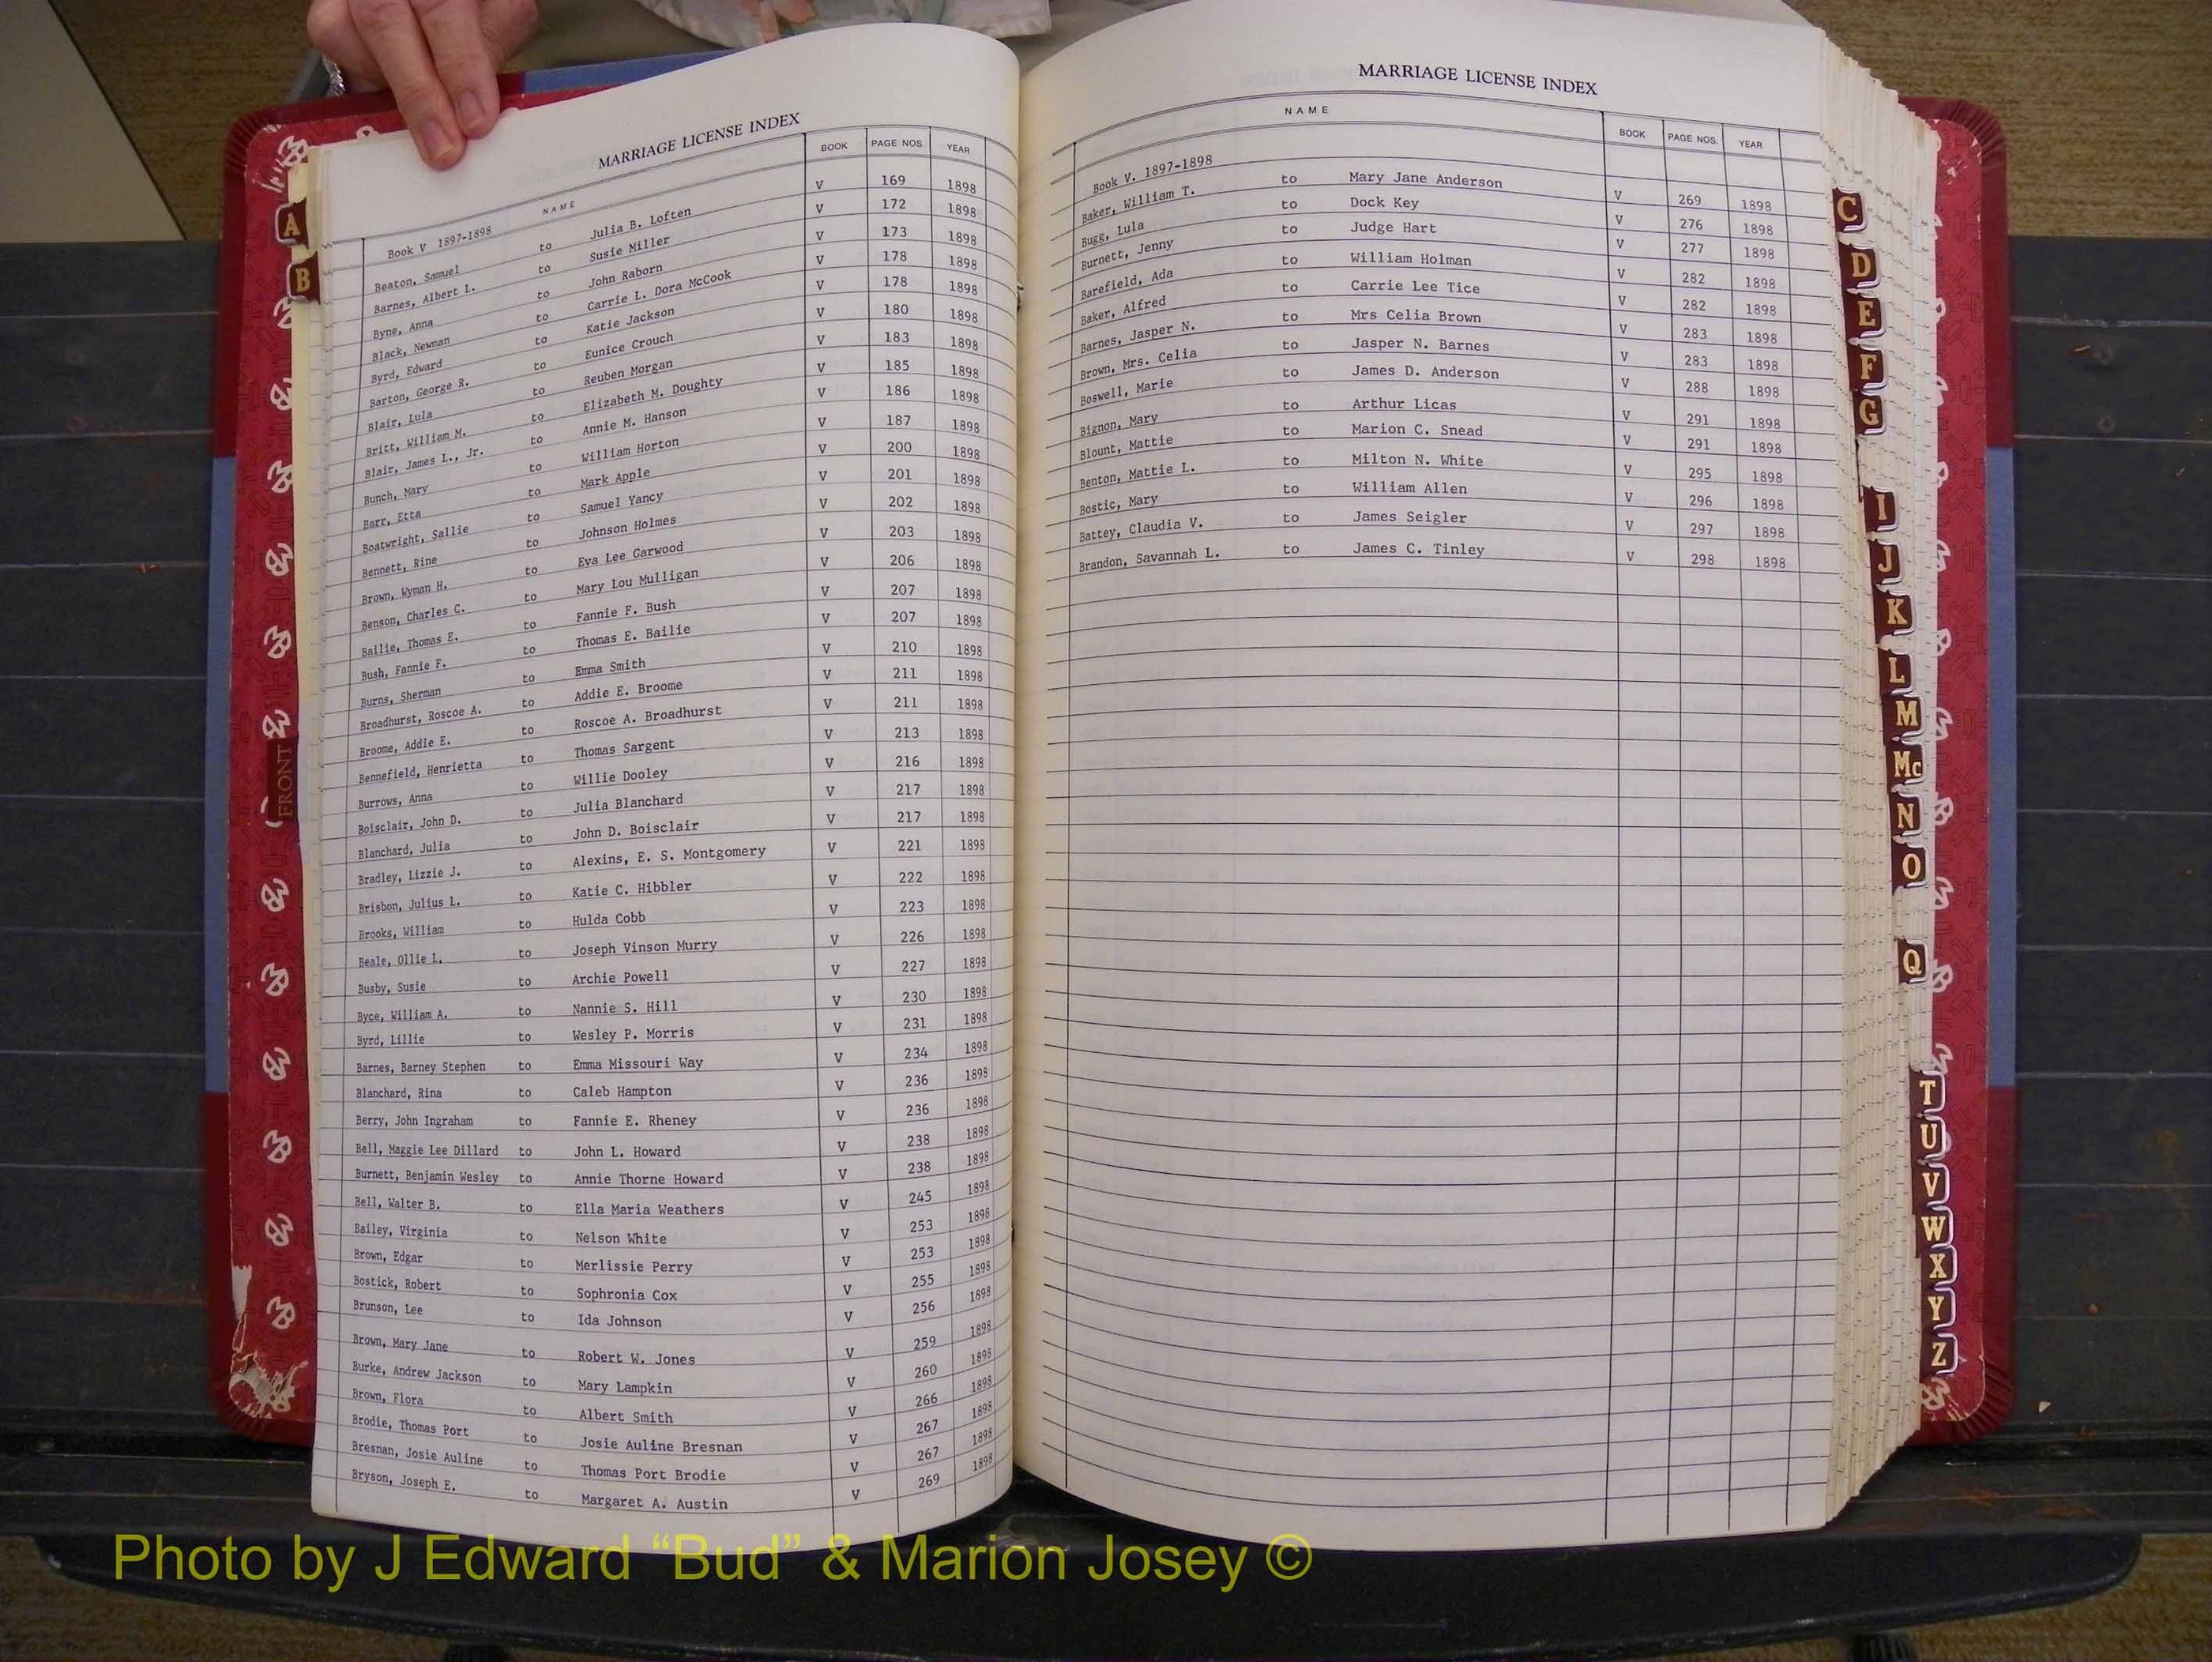 MARRIAGE LICENSE INDEX
NAME BOOK PAGE NOS. YEAR
Book V 1897-1898
Beaton, Samuel to Julia B. Loften V 169 1898
Barnes, Albert L. to Susie Miller V 172 1898
Byne, Anna to John Raborn V 173 1898
Black, Newman to Carrie L. Dora McCook V 178 1898
Byrd, Edward to Katie Jackson V 178 1898
Barton, George R. to Eunice Crouch V 180 1898
Blair, Lula to Reuben Morgan V 183 1898
Britt, William M. to Elizabeth M. Doughty V 185 1898
Blair, James L., Jr. to Annie M. Hanson V 186 1898
Bunch, Mary to William Horton V 187 1898
Barr, Etta to Mark Apple V 200 1898
Boatwright, Sallie to Samuel Yancy V 201 1898
Bennett, Rine to Johnson Holmes V 202 1898
Brown, Wyman H. to Eva Lee Garwood V 203 1898
Benson, Charles C. to Mary Lou Mulligan V 206 1898
Bailie, Thomas E. to Fannie F. Bush V 207 1898
Bush, Fannie F. to Thomas E. Bailie V 207 1898
Burns, Sherman to Emma Smith V 210 1898
Broadhurst, Roscoe A. to Addie E. Broome V 211 1898
Broome, Addie E. to Roscoe A. Broadhurst V 211 1898
Bennefield, Henrietta to Thomas Sargent V 213 1898
Burrows, Anna to Willie Dooley V 216 1898
Boisclair, John D. to Julia Blanchard V 217 1898
Blanchard, Julia to John D. Boisclair V 217 1898
Bradley, Lizzie J. to Alexins, E. S. Montgomery V 221 1898
Brisbon, Julius L. to Katie C. Hibbler V 222 1898
Brooks, William to Hulda Cobb V 223 1898
Beale, Ollie L. to Joseph Vinson Murry V 226 1898
Busby, Susie to Archie Powell V 227 1898
Byce, William A. to Nannie S. Hill V 230 1898
Byrd, Lillie to Wesley P. Morris V 231 1898
Barnes, Barney Stephen to Emma Missouri Way V 234 1898
Blanchard, Rina to Caleb Hampton V 236 1898
Berry, John Ingraham to Fannie E. Rheney V 236 1898
Bell, Maggie Lee Dillard to John L. Howard V 238 1898
Burnett, Benjamin Wesley to Annie Thorne Howard V 238 1898
Bell, Walter B. to Ella Maria Weathers V 245 1898
Bailey, Virginia to Nelson White V 253 1898
Brown, Edgar to Merlissie Perry V 253 1898
Bostick, Robert to Sophronia Cox V 255 1898
Brunson, Lee to Ida Johnson V 256 1898
Brown, Mary Jane to Robert W. Jones V 259 1898
Burke, Andrew Jackson to Mary Lampkin V 260 1898
Brown, Flora to Albert Smith V 266 1898
Brodie, Thomas Port to Josie Auline Bresnan V 267 1898
Bresnan, Josie Auline to Thomas Port Brodie V 267 1898
Bryson, Joseph E. to Margaret A. Austin V 269 1898
A
B
FRONT
MARRIAGE LICENSE INDEX
NAME BOOK PAGE NOS. YEAR
Book V. 1897-1898
Baker, William T. to Mary Jane Anderson V 269 1898
Bugg, Lula to Dock Key V 276 1898
Burnett, Jenny to Judge Hart V 277 1898
Barefield, Ada to William Holman V 282 1898
Baker, Alfred to Carrie Lee Tice V 282 1898
Barnes, Jasper N. to Mrs Celia Brown V 283 1898
Brown, Mrs. Celia to Jasper N. Barnes V 283 1898
Boswell, Marie to James D. Anderson V 288 1898
Bignon, Mary to Arthur Licas V 291 1898
Blount, Mattie to Marion C. Snead V 291 1898
Benton, Mattie L. to Milton N. White V 295 1898
Bostic, Mary to William Allen V 296 1898
Battey, Claudia V. to James Seigler V 297 1898
Brandon, Savannah L. to James C. Tinley V 298 1898
C
D
E
F
G
I
J
K
L
M
Mc
N
O
Q
T
U
V
W
X
Y
Z
Photo by J Edward “Bud” & Marion Josey ©